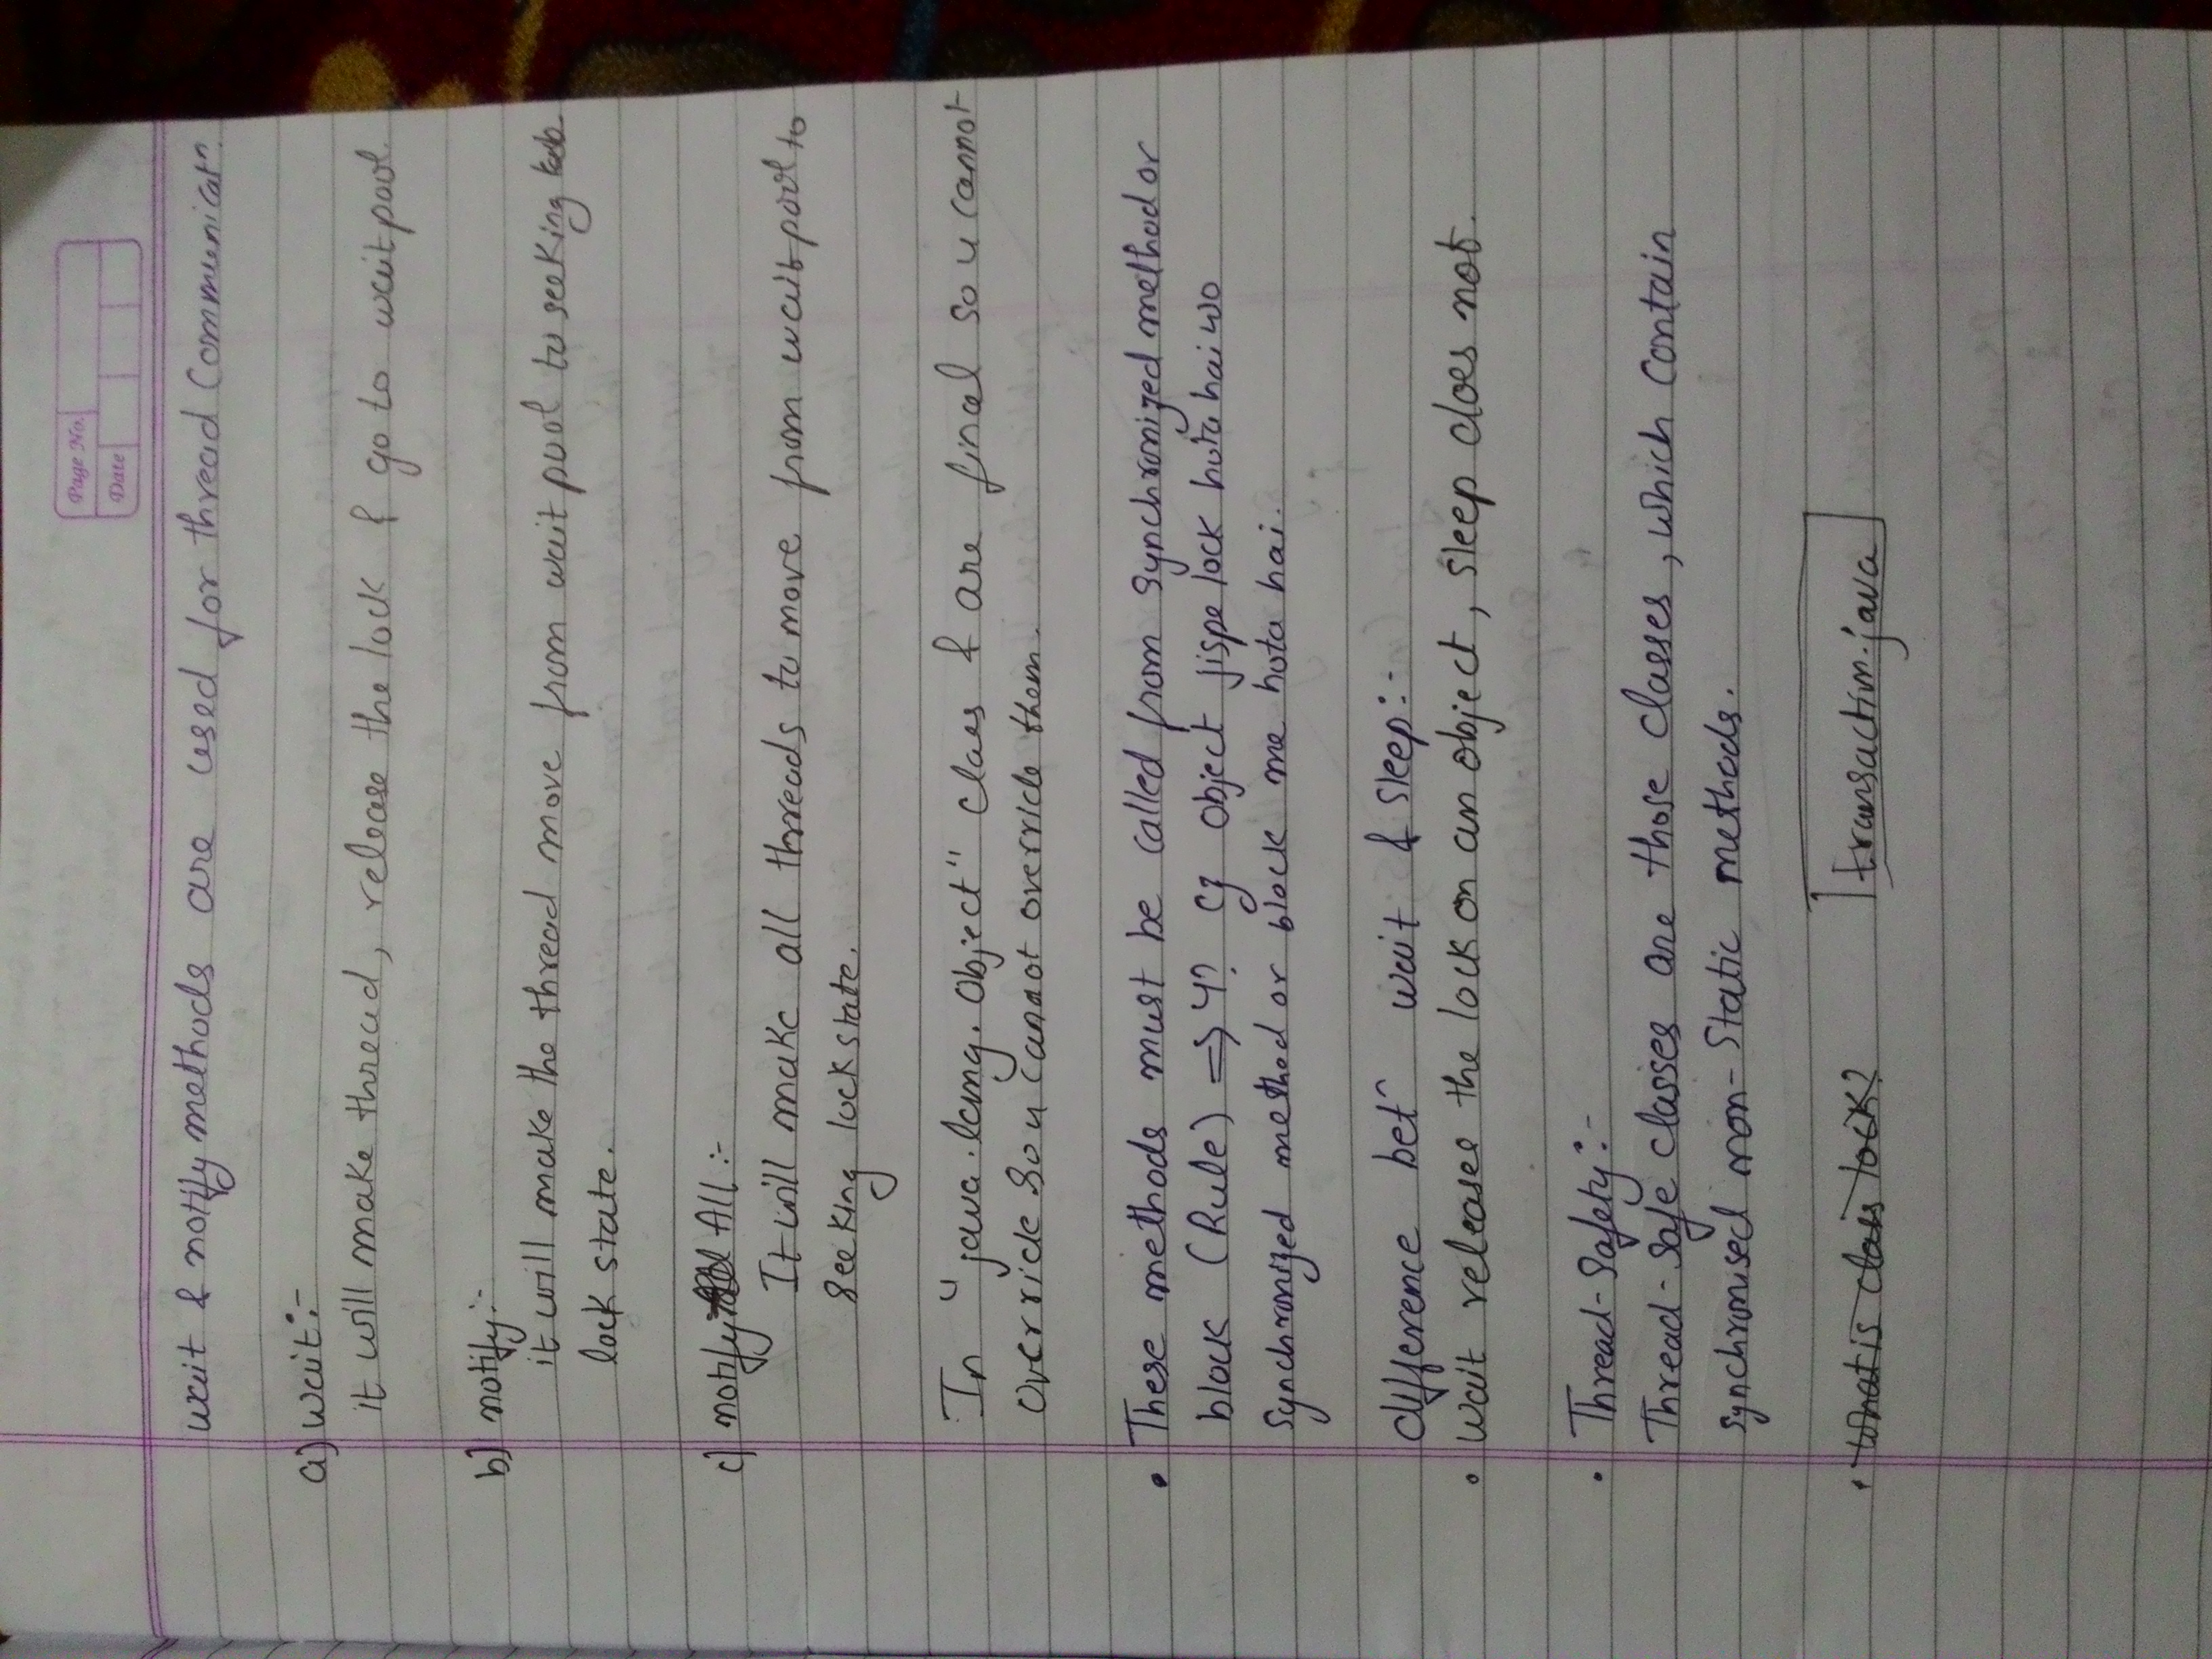 Page No.
Date
wait & notify methods are used for thread Communicatn.
a) wait:-
it will make thread, release the lock & go to wait pool.
b) notify:-
it will make the thread move from wait pool to seeking
lock state.
c) notify All :-
It will make all threads to move from wait pool to
seeking lock state.
In "java.lang.Object" class & are final so u cannot
override so u cannot override them.
• These methods must be called from synchronized method or
block (Rule) => Y? cz object jispe lock hota hai wo
synchronized method or block me hota hai.
difference bet^n wait & sleep:-
• Wait releases the lock on an object, sleep does not.
• Thread-Safety:-
Thread-safe classes are those classes, which contain
synchronised non-static methods.
• What is class lock? transaction.java